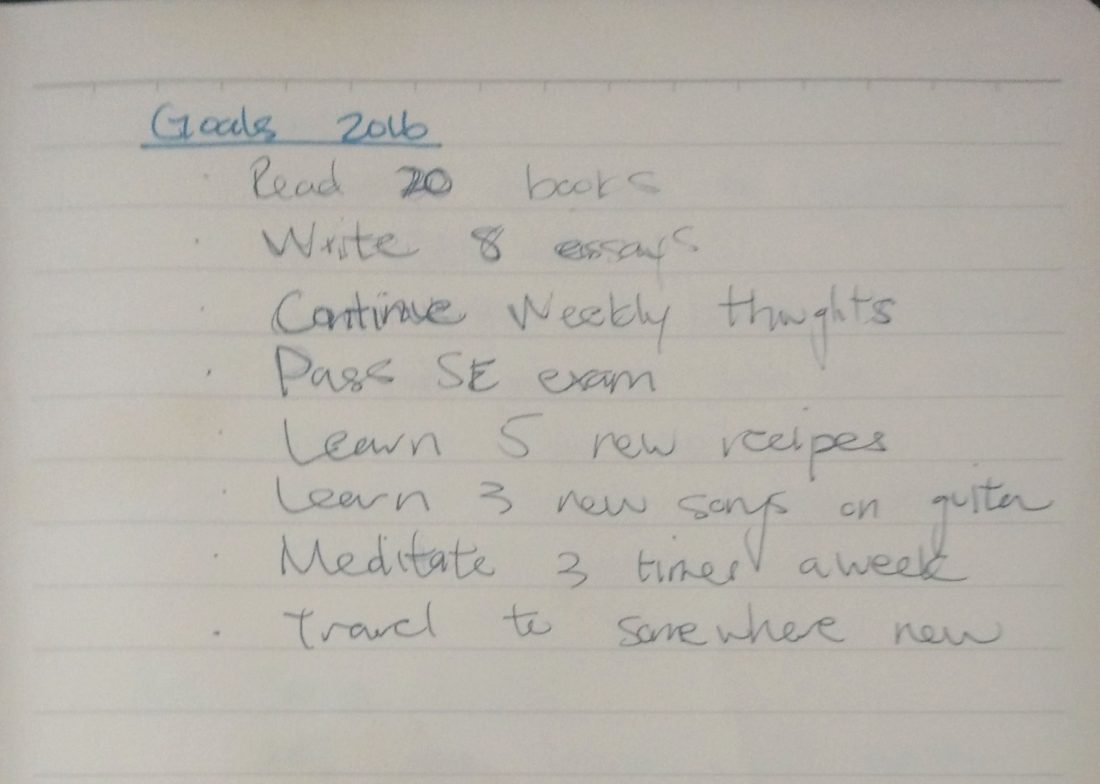 Goals 2016
· Read 20 books
· Write 8 essays
· Continue Weekly thoughts
· Pass SE exam
· Learn 5 new recipes
· Learn 3 new songs on guitar
· Meditate 3 times a week
· Travel to somewhere new